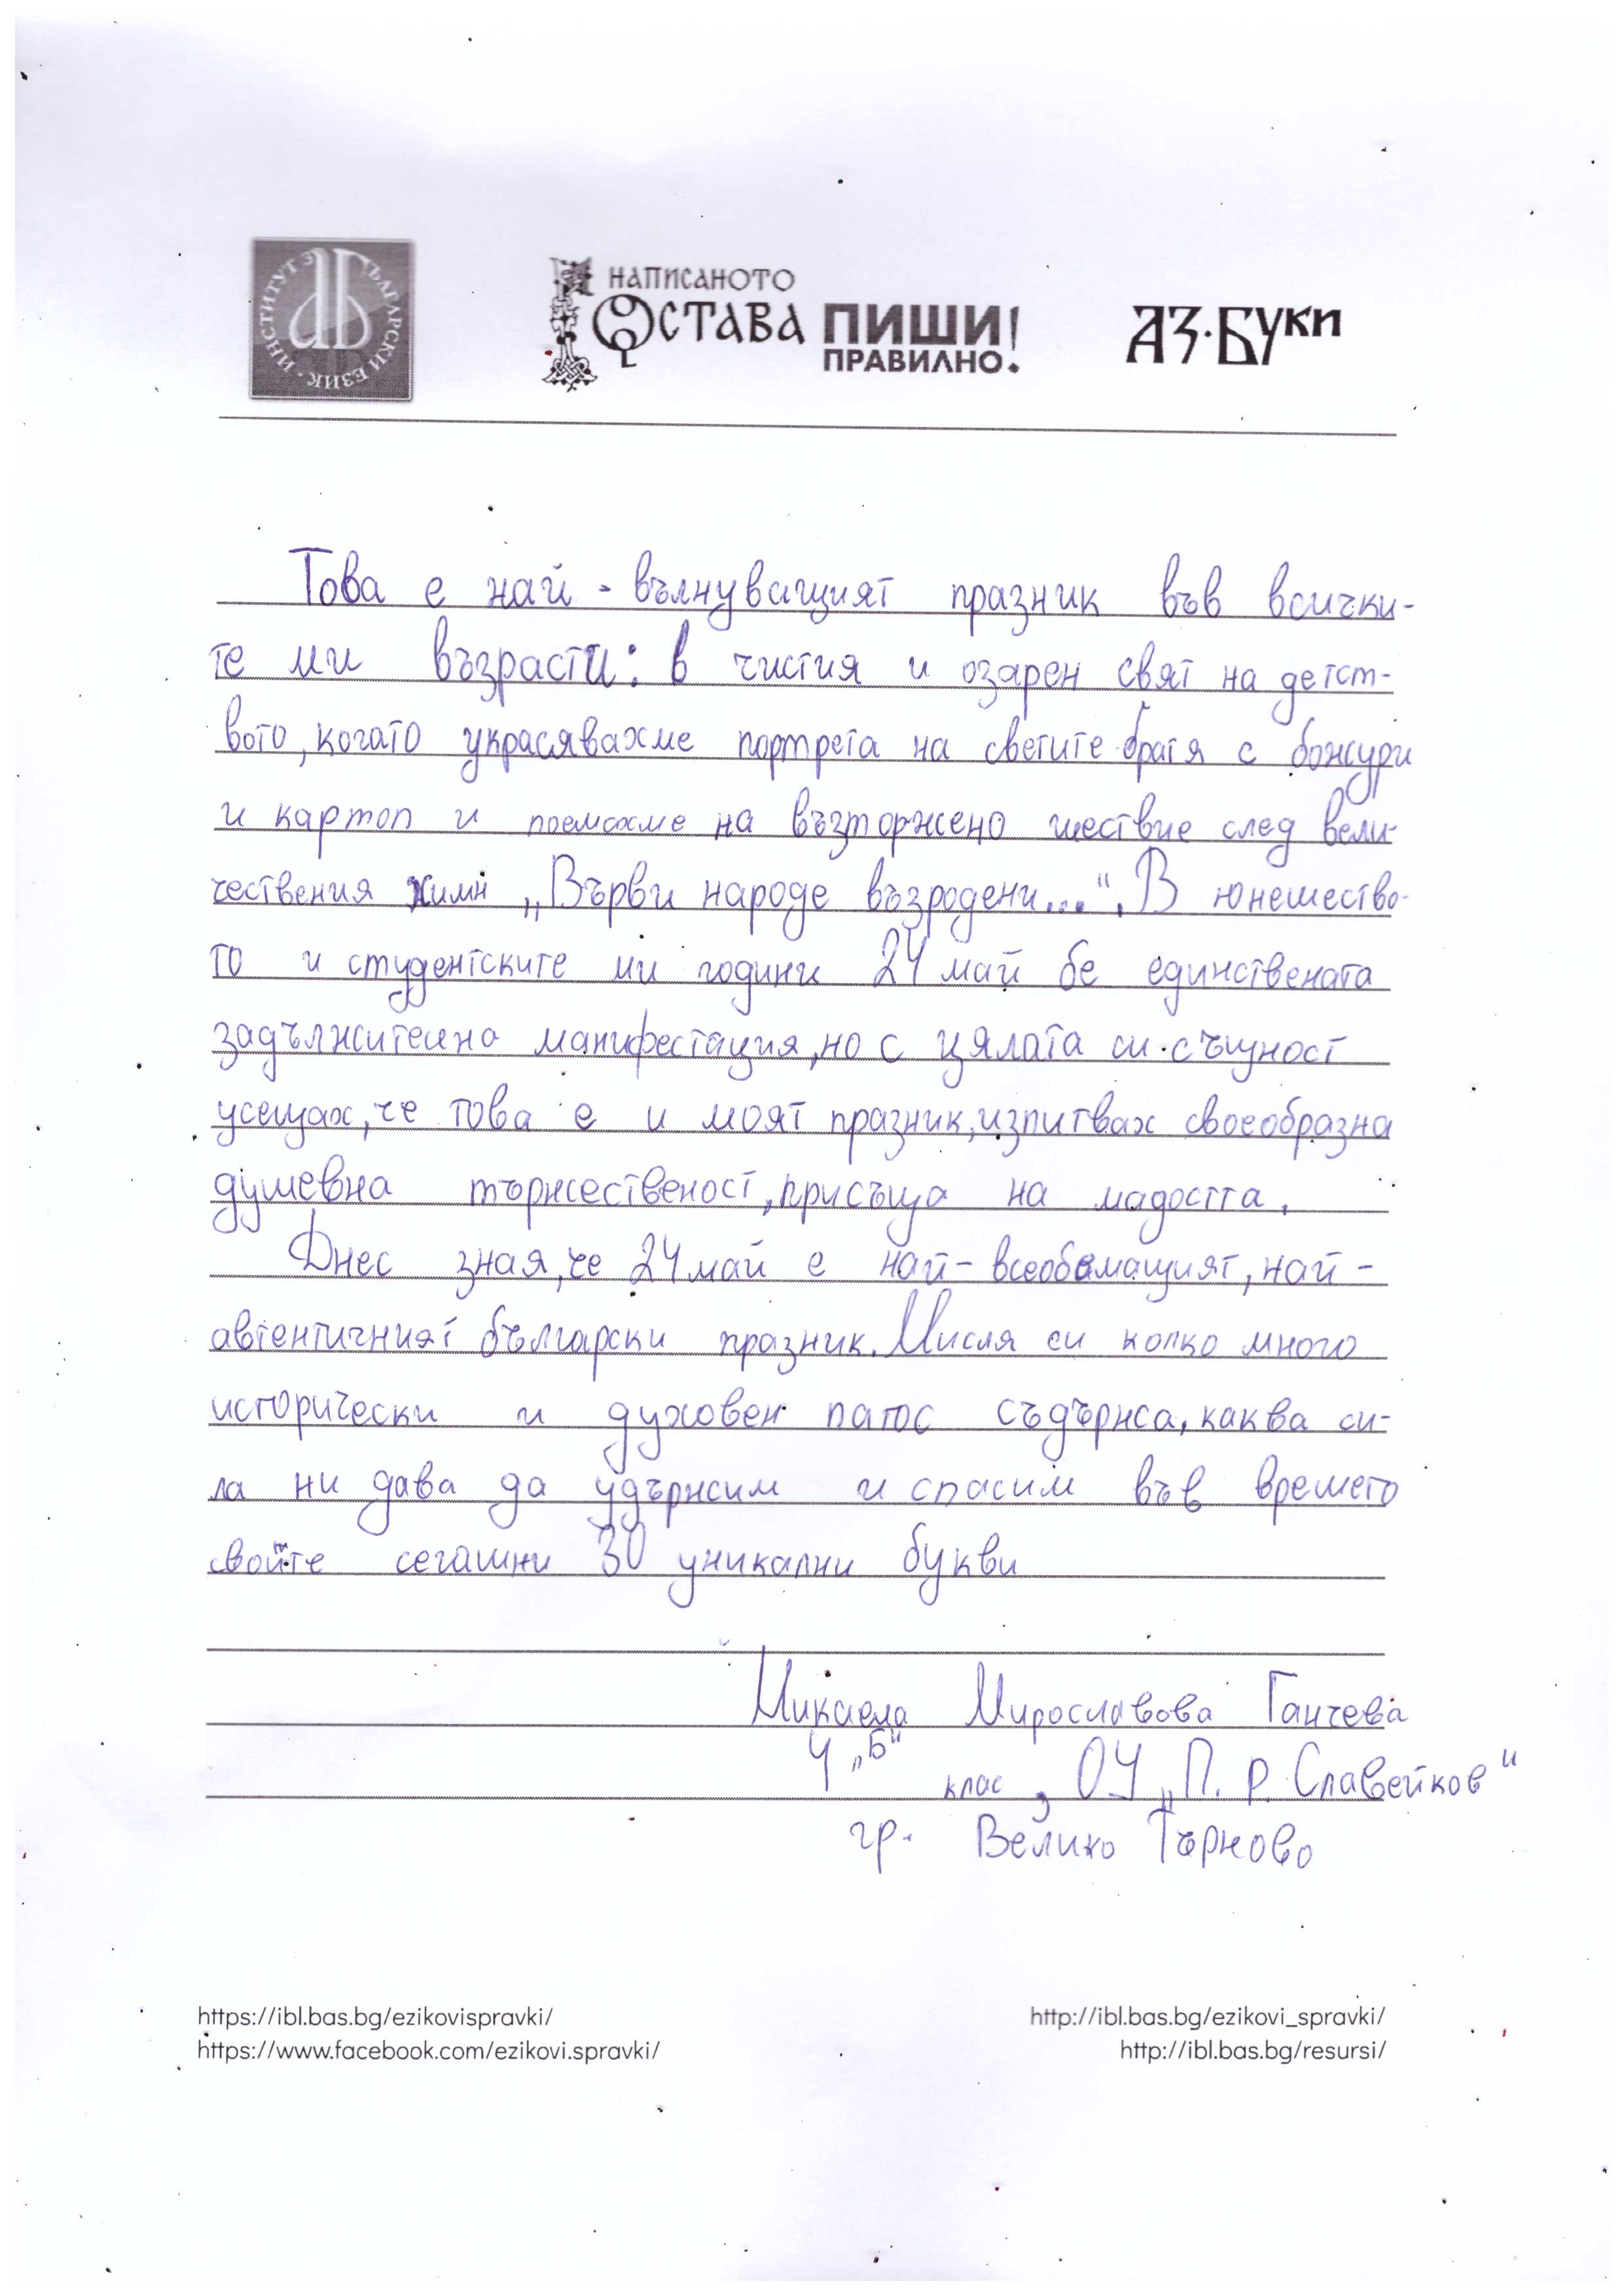 ИНСТИТУТ ЗА БЪЛГАРСКИ ЕЗИК
НАПИСАНОТО
ОСТАВА ПИШИ!
ПРАВИЛНО.
АЗ·БУКИ
Това е най - вълнуващият празник във всички-
те ми възрасти: в чистия и озарен свят на детст-
вото, когато украсявахме портрета на светите братя с божури
и картоп и поемахме на възторжено шествие след вели-
чествения химн „Върви народе възродени...". В юношество-
то и студентските ми години 24 май бе единствената
задължителна манифестация, но с цялата си същност
усещах, че това е и моят празник, изпитвах своеобразна
душевна тържественост, присъща на мадостта.
Днес зная, че 24 май е най - всеобемащият, най -
автентичният български празник. Мисля си колко много
исторически и духовен патос съдържа, каква си-
ла ни дава да удържим и спасим във времето
свойте сегашни 30 уникални букви
Микаела Мирославова Ганчева
4 „Б" клас, ОУ „П. Р. Славейков"
гр. Велико Търново
https://ibl.bas.bg/ezikovispravki/ http://ibl.bas.bg/ezikovi_spravki/
https://www.facebook.com/ezikovi.spravki/ http://ibl.bas.bg/resursi/